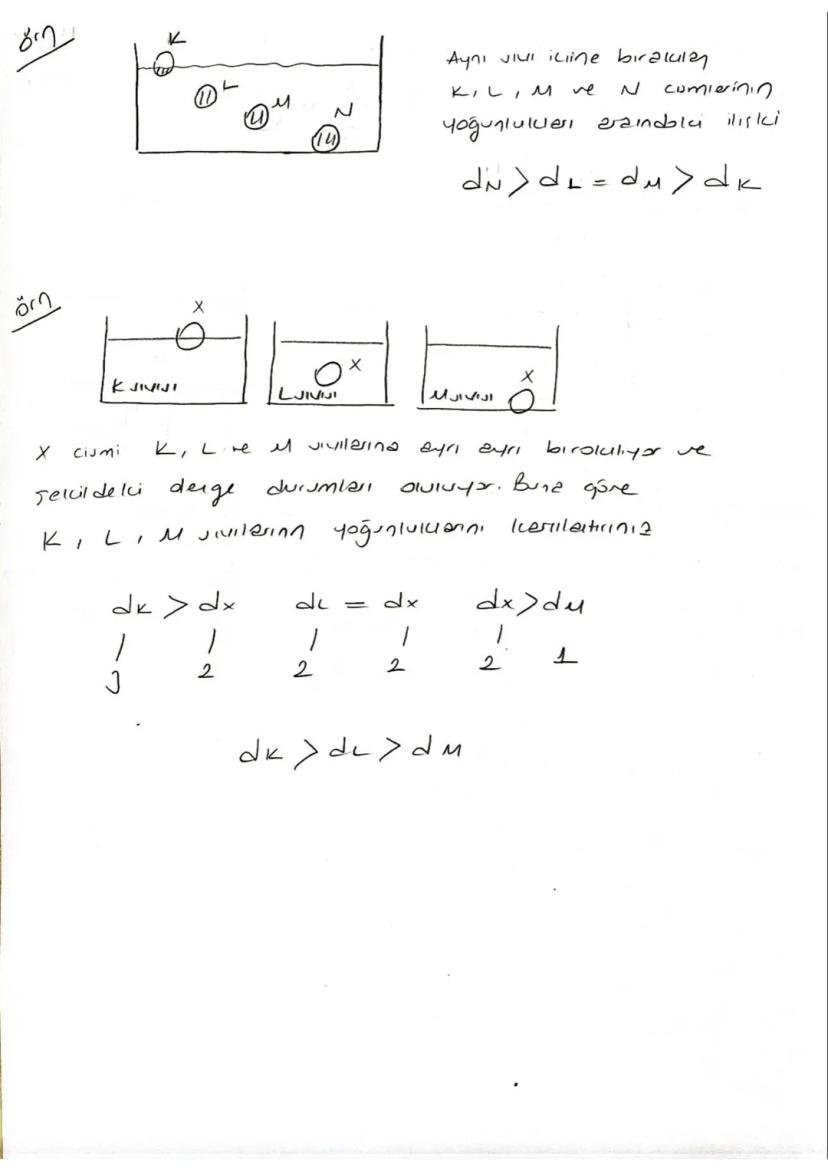 örn
K
L
M
N
Aynı sıvı içine bırakılan
K, L, M ve N cisimlerinin
yoğunlukları arasındaki ilişki
dN > dL = dM > dK
örn
X
K sıvısı
X
L sıvısı
X
M sıvısı
X cismi K, L ve M sıvılarına ayrı ayrı bırakılıyor ve
şekildeki denge durumları oluşuyor. Buna göre
K, L, M sıvılarının yoğunluklarını karşılaştırınız
dK > dX dL = dX dX > dM
3 2 2 2 2 1
dK > dL > dM